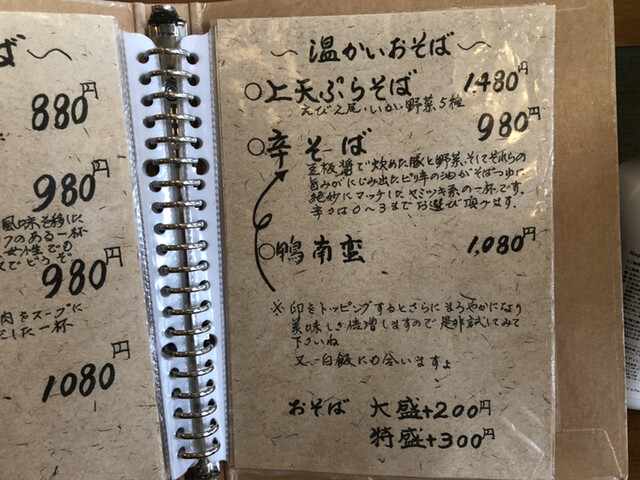 ば〜
880円
980円
風味を移した
クのある一杯
女性でも
980円
肉をスープに
した一杯
1080円
〜温かいおそば〜
○上天ぷらそば 1,480円
えび2尾・いか・野菜5種
○辛そば 980円
豆板醤で炒めた豚と野菜、そしてそれらの
旨みがにじみ出たピリ辛の油がそばつゆに
絶妙にマッチしたヤミツキ系の一杯です。
辛さは0〜3までお選び頂けます。
○鴨南蛮 1,080円
※卵をトッピングするとさらにまろやかになり
美味しさ倍増しますので是非試してみて
下さいね
又、白飯にも合いますよ
おそば 大盛+200円
特盛+300円